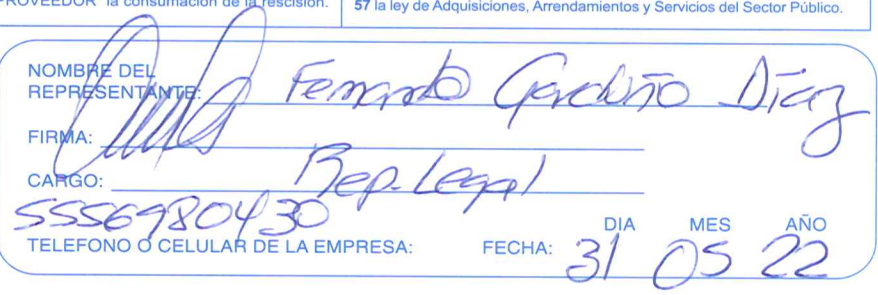 PROVEEDOR" la consumación de la rescisión.
57 la ley de Adquisiciones, Arrendamientos y Servicios del Sector Público.
NOMBRE DEL
REPRESENTANTE: Fernando Garduño Díaz
FIRMA:
CARGO: Rep. Legal
5556980430
TELEFONO O CELULAR DE LA EMPRESA:
FECHA: DIA MES AÑO
31 05 22